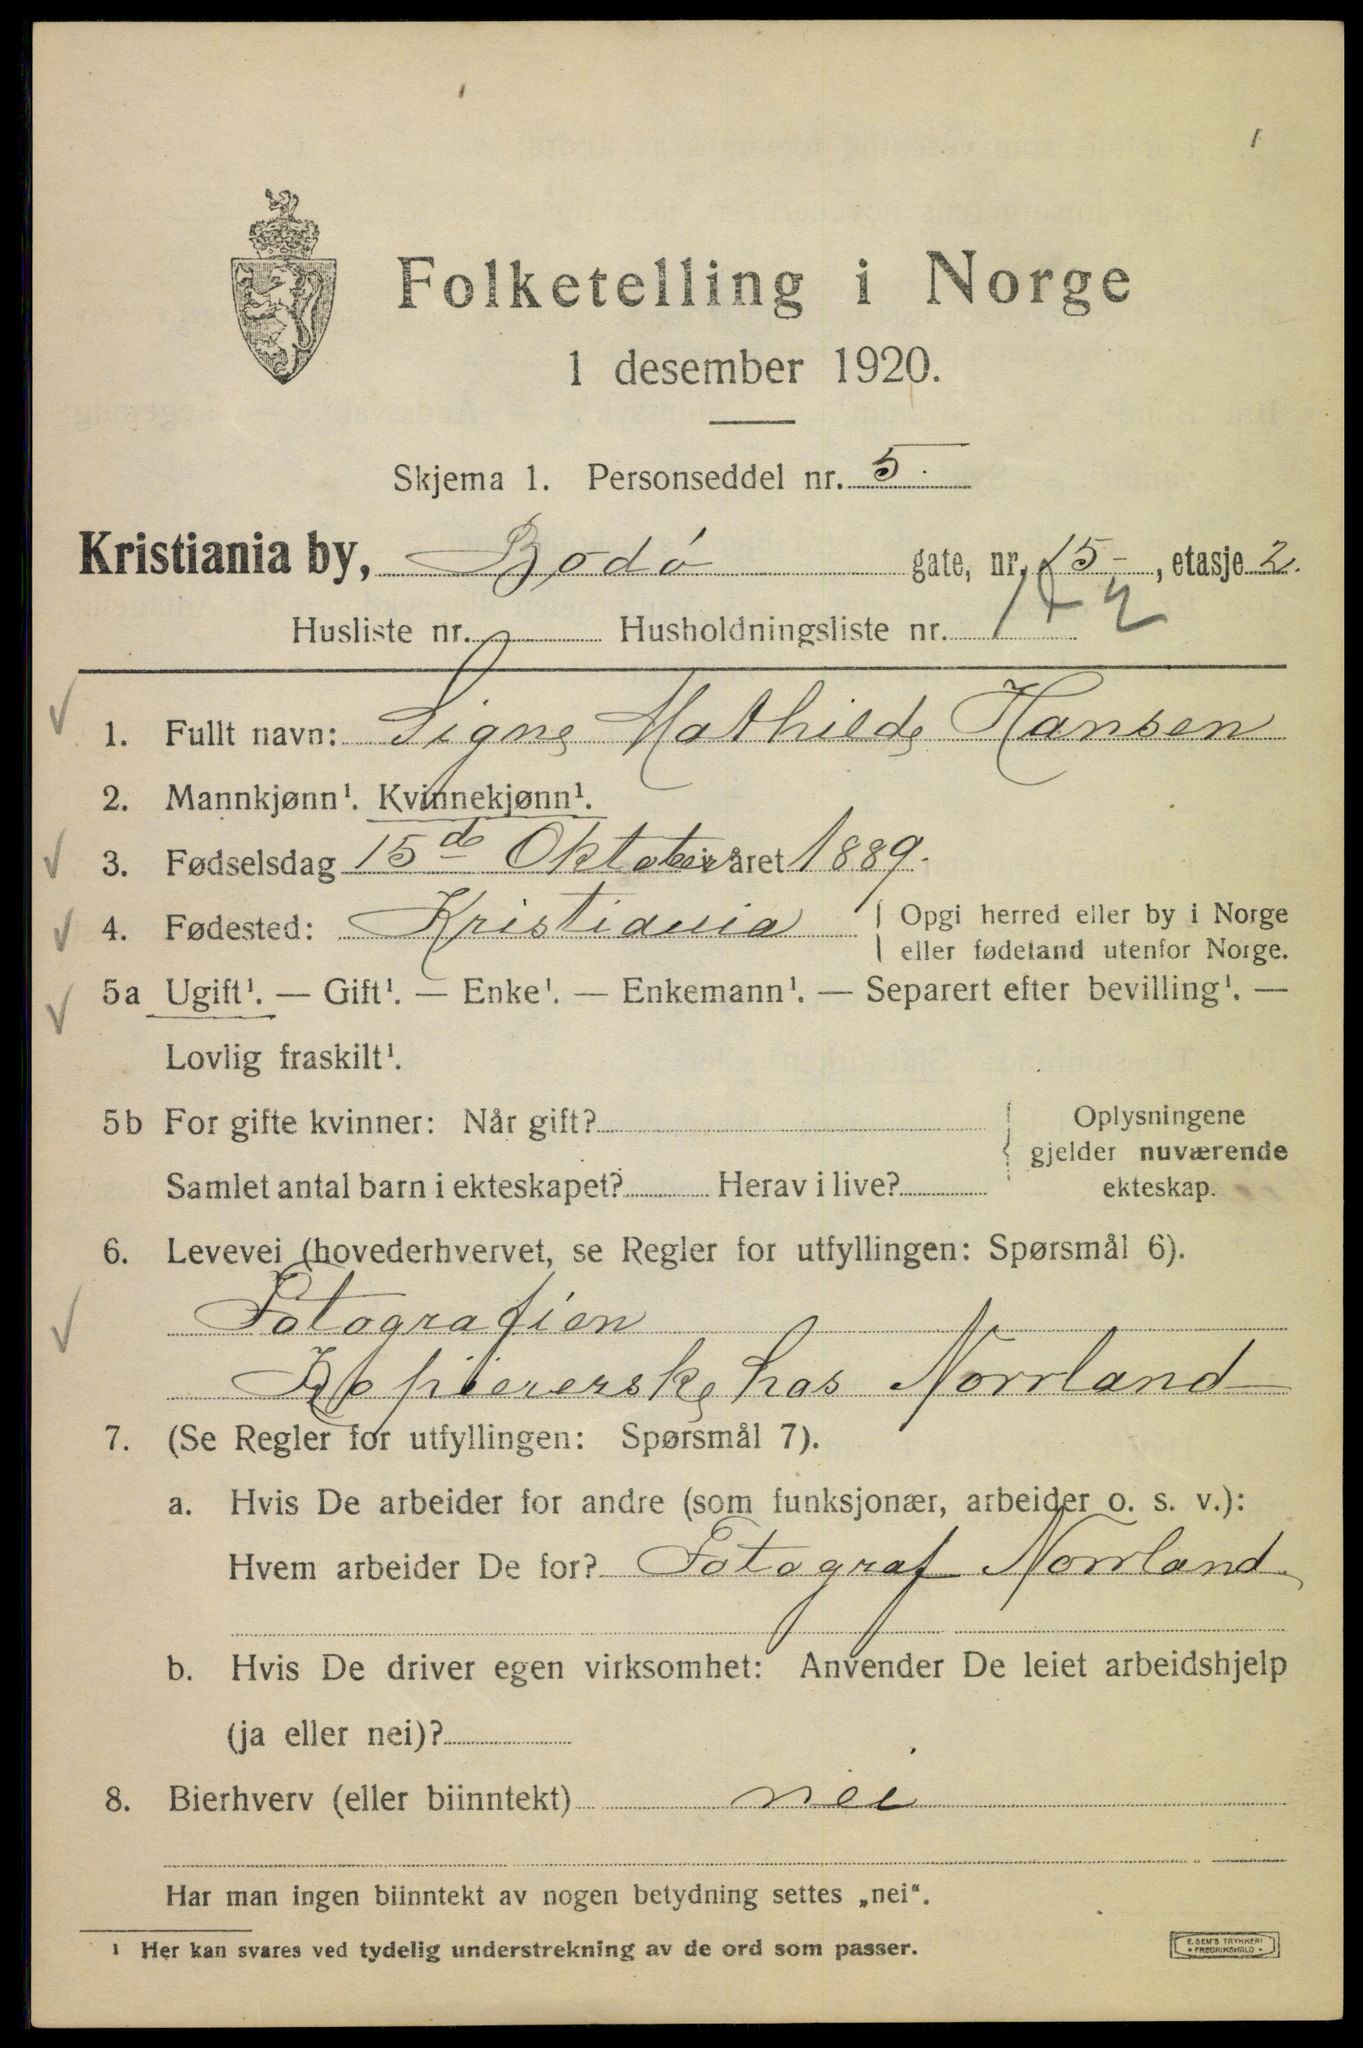 Folketelling i Norge
1 desember 1920.
Skjema 1. Personseddel nr. 5.
Kristiania by, Bodø gate, nr. 15, etasje 2.
Husliste nr. Husholdningsliste nr.
1. Fullt navn: Signe Mathilde Hansen
2. Mannkjønn¹. Kvinnekjønn¹.
3. Fødselsdag 15de Oktober i året 1889.
4. Fødested: Kristiania Opgi herred eller by i Norge
eller fødeland utenfor Norge.
5a Ugift¹. — Gift¹. — Enke¹. — Enkemann¹. — Separert efter bevilling¹. —
Lovlig fraskilt¹.
5b For gifte kvinner: Når gift? Oplysningene
gjelder nuværende
Samlet antal barn i ekteskapet? Herav i live? ekteskap.
6. Levevei (hovederhvervet, se Regler for utfyllingen: Spørsmål 6).
Fotografien
Kopiererske hos Norrland
7. (Se Regler for utfyllingen: Spørsmål 7).
a. Hvis De arbeider for andre (som funksjonær, arbeider o. s. v.):
Hvem arbeider De for? Fotograf Norrland
b. Hvis De driver egen virksomhet: Anvender De leiet arbeidshjelp
(ja eller nei)?
8. Bierhverv (eller biinntekt) nei
Har man ingen biinntekt av nogen betydning settes „nei“.
¹ Her kan svares ved tydelig understrekning av de ord som passer.
E. SEM'S TRYKKERI
FREDRIKSHALD